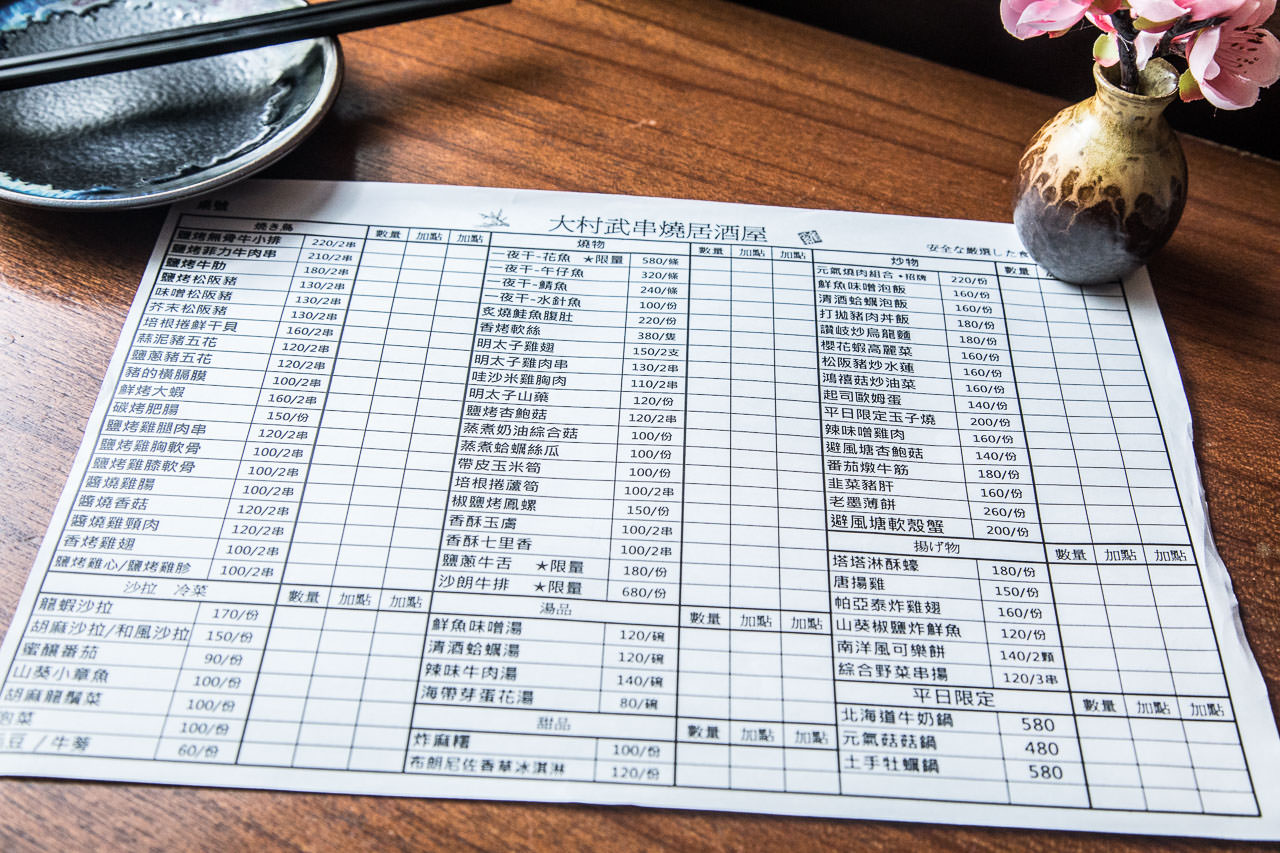 桌號
大村武串燒居酒屋
安全な厳選した食
燒き鳥 數量 加點 加點
鹽烤無骨牛小排 220/2串
鹽烤菲力牛肉串 210/2串
鹽烤牛肋 180/2串
鹽烤松阪豬 130/2串
味噌松阪豬 130/2串
芥末松阪豬 130/2串
培根捲鮮干貝 160/2串
蒜泥豬五花 120/2串
鹽蔥豬五花 120/2串
豬的橫膈膜 100/2串
鮮烤大蝦 160/2串
碳烤肥腸 150/份
鹽烤雞腿肉串 120/2串
鹽烤雞胸軟骨 100/2串
鹽烤雞膝軟骨 100/2串
醬燒雞腸 100/2串
醬燒香菇 120/2串
醬燒雞頸肉 120/2串
香烤雞翅 100/2串
鹽烤雞心/鹽烤雞胗 100/2串
沙拉 冷菜 數量 加點 加點
龍蝦沙拉 170/份
胡麻沙拉/和風沙拉 150/份
蜜釀番茄 90/份
山葵小章魚 100/份
胡麻龍鬚菜 100/份
泡菜 100/份
豆 / 牛蒡 60/份
燒物 數量 加點 加點
一夜干-花魚 ★限量 580/條
一夜干-午仔魚 320/條
一夜干-鯖魚 240/條
一夜干-水針魚 100/份
炙燒鮭魚腹肚 220/份
香烤軟絲 380/隻
明太子雞翅 150/2支
明太子雞肉串 130/2串
哇沙米雞胸肉 110/2串
明太子山藥 120/份
鹽烤杏鮑菇 120/2串
蒸煮奶油綜合菇 100/份
蒸煮蛤蠣絲瓜 100/份
帶皮玉米筍 100/份
培根捲蘆筍 100/2串
椒鹽烤鳳螺 150/份
香酥玉膚 100/2串
香酥七里香 100/2串
鹽蔥牛舌 ★限量 180/份
沙朗牛排 ★限量 680/份
湯品 數量 加點 加點
鮮魚味噌湯 120/碗
清酒蛤蠣湯 120/碗
辣味牛肉湯 140/碗
海帶芽蛋花湯 80/碗
甜品 數量 加點 加點
炸麻糬 100/份
布朗尼佐香草冰淇淋 120/份
炒物 數量
元氣燒肉組合•招牌 220/份
鮮魚味噌泡飯 160/份
清酒蛤蠣泡飯 160/份
打拋豬肉丼飯 180/份
讚岐炒烏龍麵 180/份
櫻花蝦高麗菜 160/份
松阪豬炒水蓮 160/份
鴻禧菇炒油菜 160/份
起司歐姆蛋 140/份
平日限定玉子燒 200/份
辣味噌雞肉 160/份
避風塘杏鮑菇 140/份
番茄燉牛筋 180/份
韭菜豬肝 160/份
老墨薄餅 260/份
避風塘軟殼蟹 200/份
揚げ物 數量 加點 加點
塔塔淋酥蠔 180/份
唐揚雞 150/份
帕亞泰炸雞翅 160/份
山葵椒鹽炸鮮魚 120/份
南洋風可樂餅 140/2顆
綜合野菜串揚 120/3串
平日限定 數量 加點 加點
北海道牛奶鍋 580
元氣菇菇鍋 480
土手牡蠣鍋 580